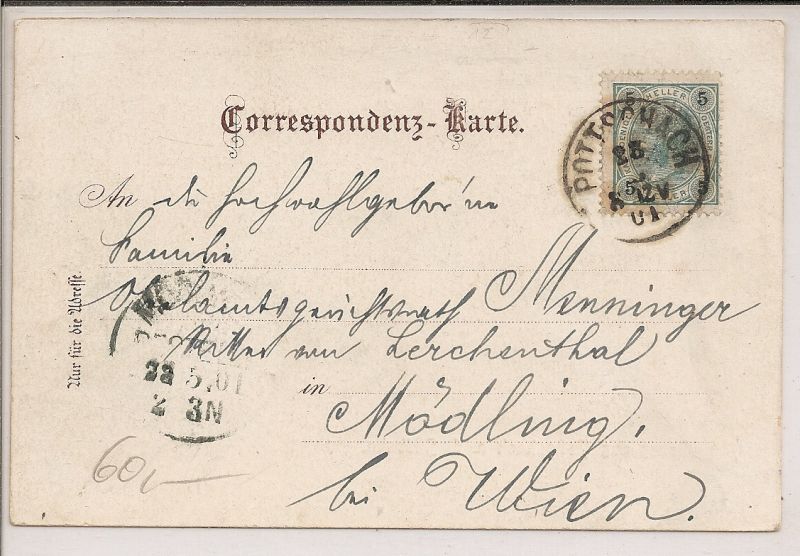 Correspondenz-Karte.
5 HELLER 5
5
POTTSCHACH
23
8 12V
01
An die hochwohlgebor'ne
Familie
Oberlandsgerichtsrath Menninger
Ritter von Lerchenthal
in Mödling,
bei Wien.
Nur für die Adresse.
23 5.01
2 3N
60